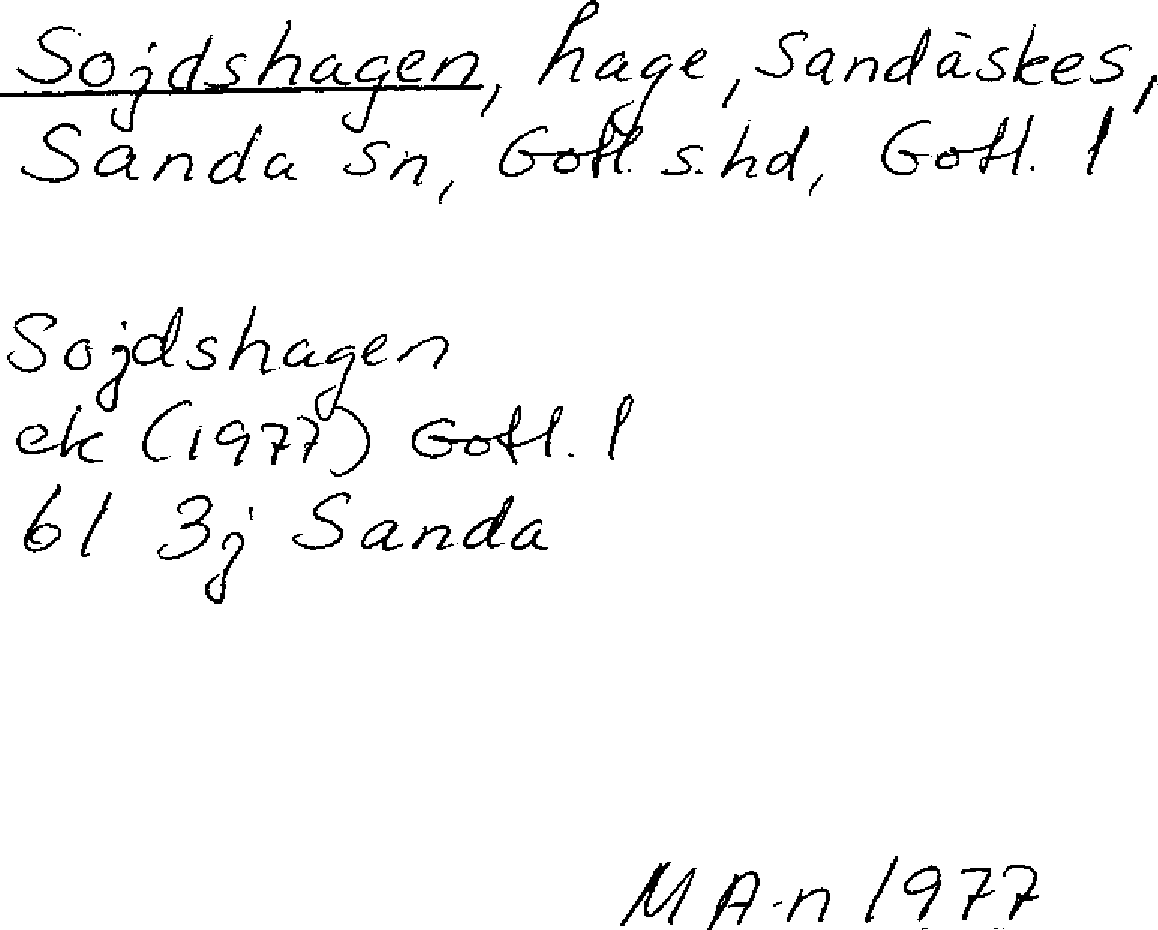 Sojdshagen, hage, Sandäskes,
Sanda sn, Gotl. s. hd, Gotl. l
Sojdshagen
ek (1977) Gotl. l
6I 3j Sanda
M A-n 1977